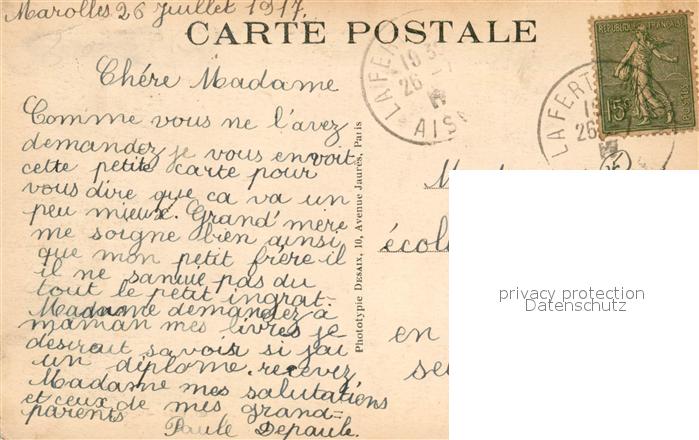 Marolles 26 Juillet 1917.
CARTE POSTALE
REPUBLIQUE FRANÇAISE
15c
POSTES
LA FERT
19
26 -7
AIS
LA FERT
26 -7
Chére Madame
Comme vous ne l'avez
demandez je vous envoit
cette petite carte pour
vous dire que ca va un
peu mieux. Grand'mère
me soigne bien ainsi
que mon petit frère il
il ne sanuie pas du
tout le petit ingrat.
Madame demandez à
maman mes livres je
désirait savoir si j'ai
un diplome. recevez
Madame mes salutations
et ceux de mes grand=
parents
Paule Depaule.
Phototypie DESAIX, 10, Avenue Jaurès, Paris
M
écol
en
se
privacy protection
Datenschutz